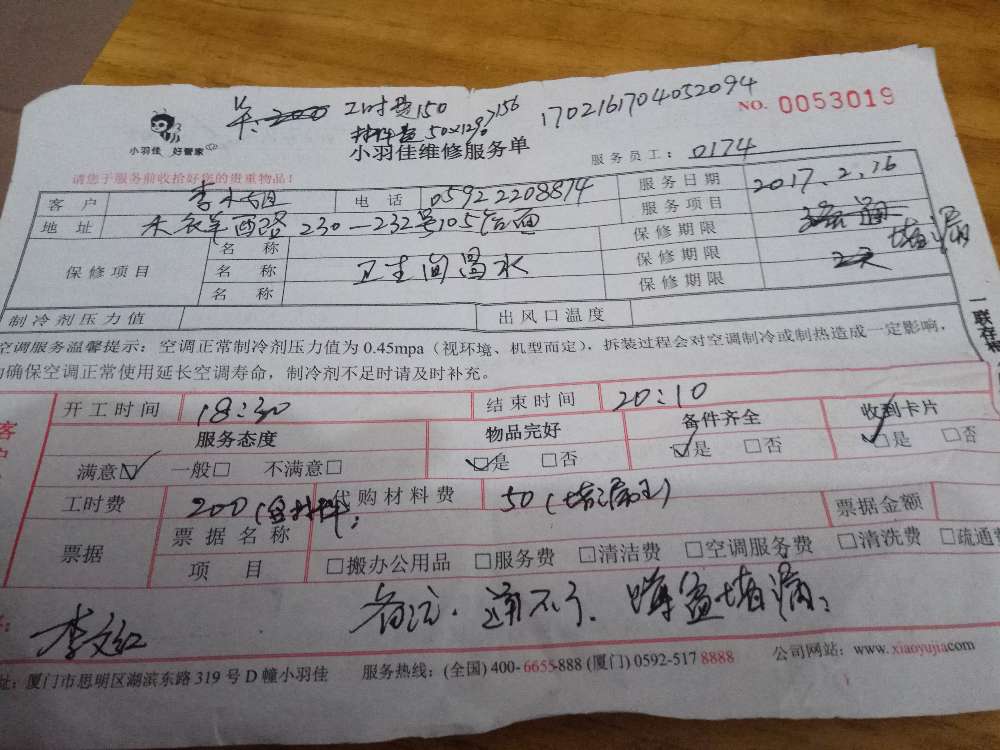 工时费150 156 1702161704052094
材料费
NO. 0053019
小羽佳 好管家
小羽佳维修服务单
服务员工: 0174
请您于服务前收拾好您的贵重物品!
客户 李小姐 电话 05922208874 服务日期 2017.2.16
地址 西路230-232号105店面 服务项目 堵漏
保修项目 名称 保修期限
名称 卫生间 水 保修期限
名称 保修期限
制冷剂压力值 出风口温度
空调服务温馨提示: 空调正常制冷剂压力值为 0.45mpa (视环境、机型而定), 拆装过程会对空调制冷或制热造成一定影响,
确保空调正常使用延长空调寿命, 制冷剂不足时请及时补充。
开工时间 18:30 结束时间 20:10
服务态度 物品完好 备件齐全 收到卡片
满意☑ 一般□ 不满意□ ☑是 □否 ☑是 □否 ☑是 □否
工时费 200(含材料) 代购材料费 50(堵漏王) 票据金额
票据 票据名称
项目 □搬办公用品 □服务费 □清洁费 □空调服务费 □清洗费 □疏通
备注. 通不了. 堵漏
李文红
址: 厦门市思明区湖滨东路 319 号 D 幢小羽佳 服务热线: (全国) 400-6655-888 (厦门) 0592-517 8888 公司网站: www.xiaoyujia.com
一联存